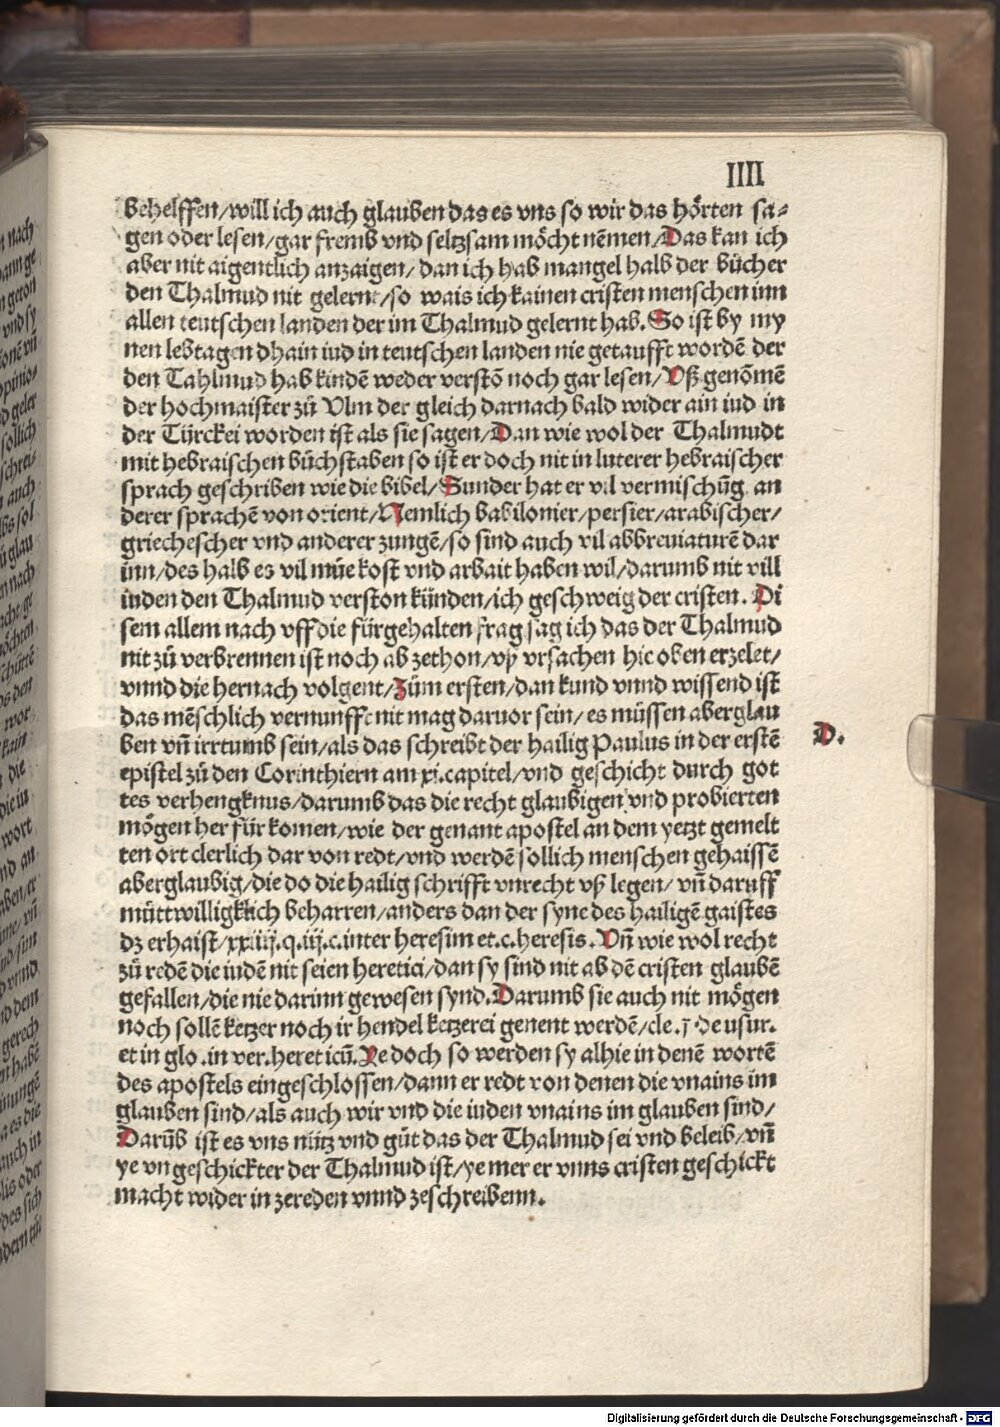 IIII
behelffen/will ich auch glauben das es vns so wir das hoͤrten sa⸗
gen oder lesen/gar fremb vnd seltzsam moͤcht nẽmen/Das kan ich
aber nit aigentlich anzaigen/dan ich hab mangel halb der buͤcher
den Thalmud nit gelernt/so wais ich kainen cristen menschen inn
allen teutschen landen der im Thalmud gelernt hab. So ist by my
nen lebtagen dhain iud in teutschen landen nie getaufft wordẽ der
den Tahlmud hab kindẽ weder verstõ noch gar lesen/Vß genõmẽ
der hochmaister zuͦ Vlm der gleich darnach bald wider ain iud in
der Tuͤrckei worden ist als sie sagen/Dan wie wol der Thalmudt
mit hebraischen buͦchstaben so ist er doch nit in luterer hebraischer
sprach geschriben wie die bibel/Sunder hat er vil vermischũg an
derer sprachẽ von orient/Nemlich babilonier/persier/arabischer/
griechescher vnd anderer zungẽ/so sind auch vil abbreviaturẽ dar
inn/des halb es vil muͤe kost vnd arbait haben wil/darumb nit vill
iuden den Thalmud verston kuͤnden/ich geschweig der cristen. Di
sem allem nach vff die fuͤrgehalten frag sag ich das der Thalmud
nit zuͦ verbrennen ist noch ab zethon/vß vrsachen hie oben erzelet/
vnnd die hernach volgent/Zuͦm ersten/dan kund vnnd wissend ist
das mẽschlich vernunfft nit mag daruor sein/es muͤssen aberglau
ben vñ irrtumb sein/als das schreibt der hailig Paulus in der erstẽ
D.
epistel zuͦ den Corinthiern am xi.capitel/vnd geschicht durch got
tes verhengknus/darumb das die recht glaubigen vnd probierten
moͤgen her fuͤr komen/wie der genant apostel an dem yetzt gemelt
ten ort clerlich dar von redt/vnd werdẽ sollich menschen gehaissẽ
aberglaubig/die do die hailig schrifft vnrecht vß legen/vñ daruff
muͦttwilligklich beharren/anders dan der syne des hailigẽ gaistes
dz erhaist/xxiiij.q.iij.c.inter heresim et.c.heresis. Vñ wie wol recht
zuͦ redẽ die iudẽ nit seien heretici/dan sy sind nit ab dẽ cristen glaubẽ
gefallen/die nie darinn gewesen synd. Darumb sie auch nit moͤgen
noch sollẽ ketzer noch ir hendel ketzerei genent werdẽ/cle.j de usur.
et in glo.in ver.hereticũ. Ye doch so werden sy alhie in denẽ wortẽ
des apostels eingeschlossen/dann er redt von denen die vnains im
glauben sind/als auch wir vnd die iuden vnains im glauben sind/
Darũb ist es vns nütz vnd guͦt das der Thalmud sei vnd beleib/vñ
ye vngeschickter der Thalmud ist/ye mer er vnns cristen geschickt
macht wider in zereden vnnd zeschreibenn.
Digitalisierung gefördert durch die Deutsche Forschungsgemeinschaft - DFG